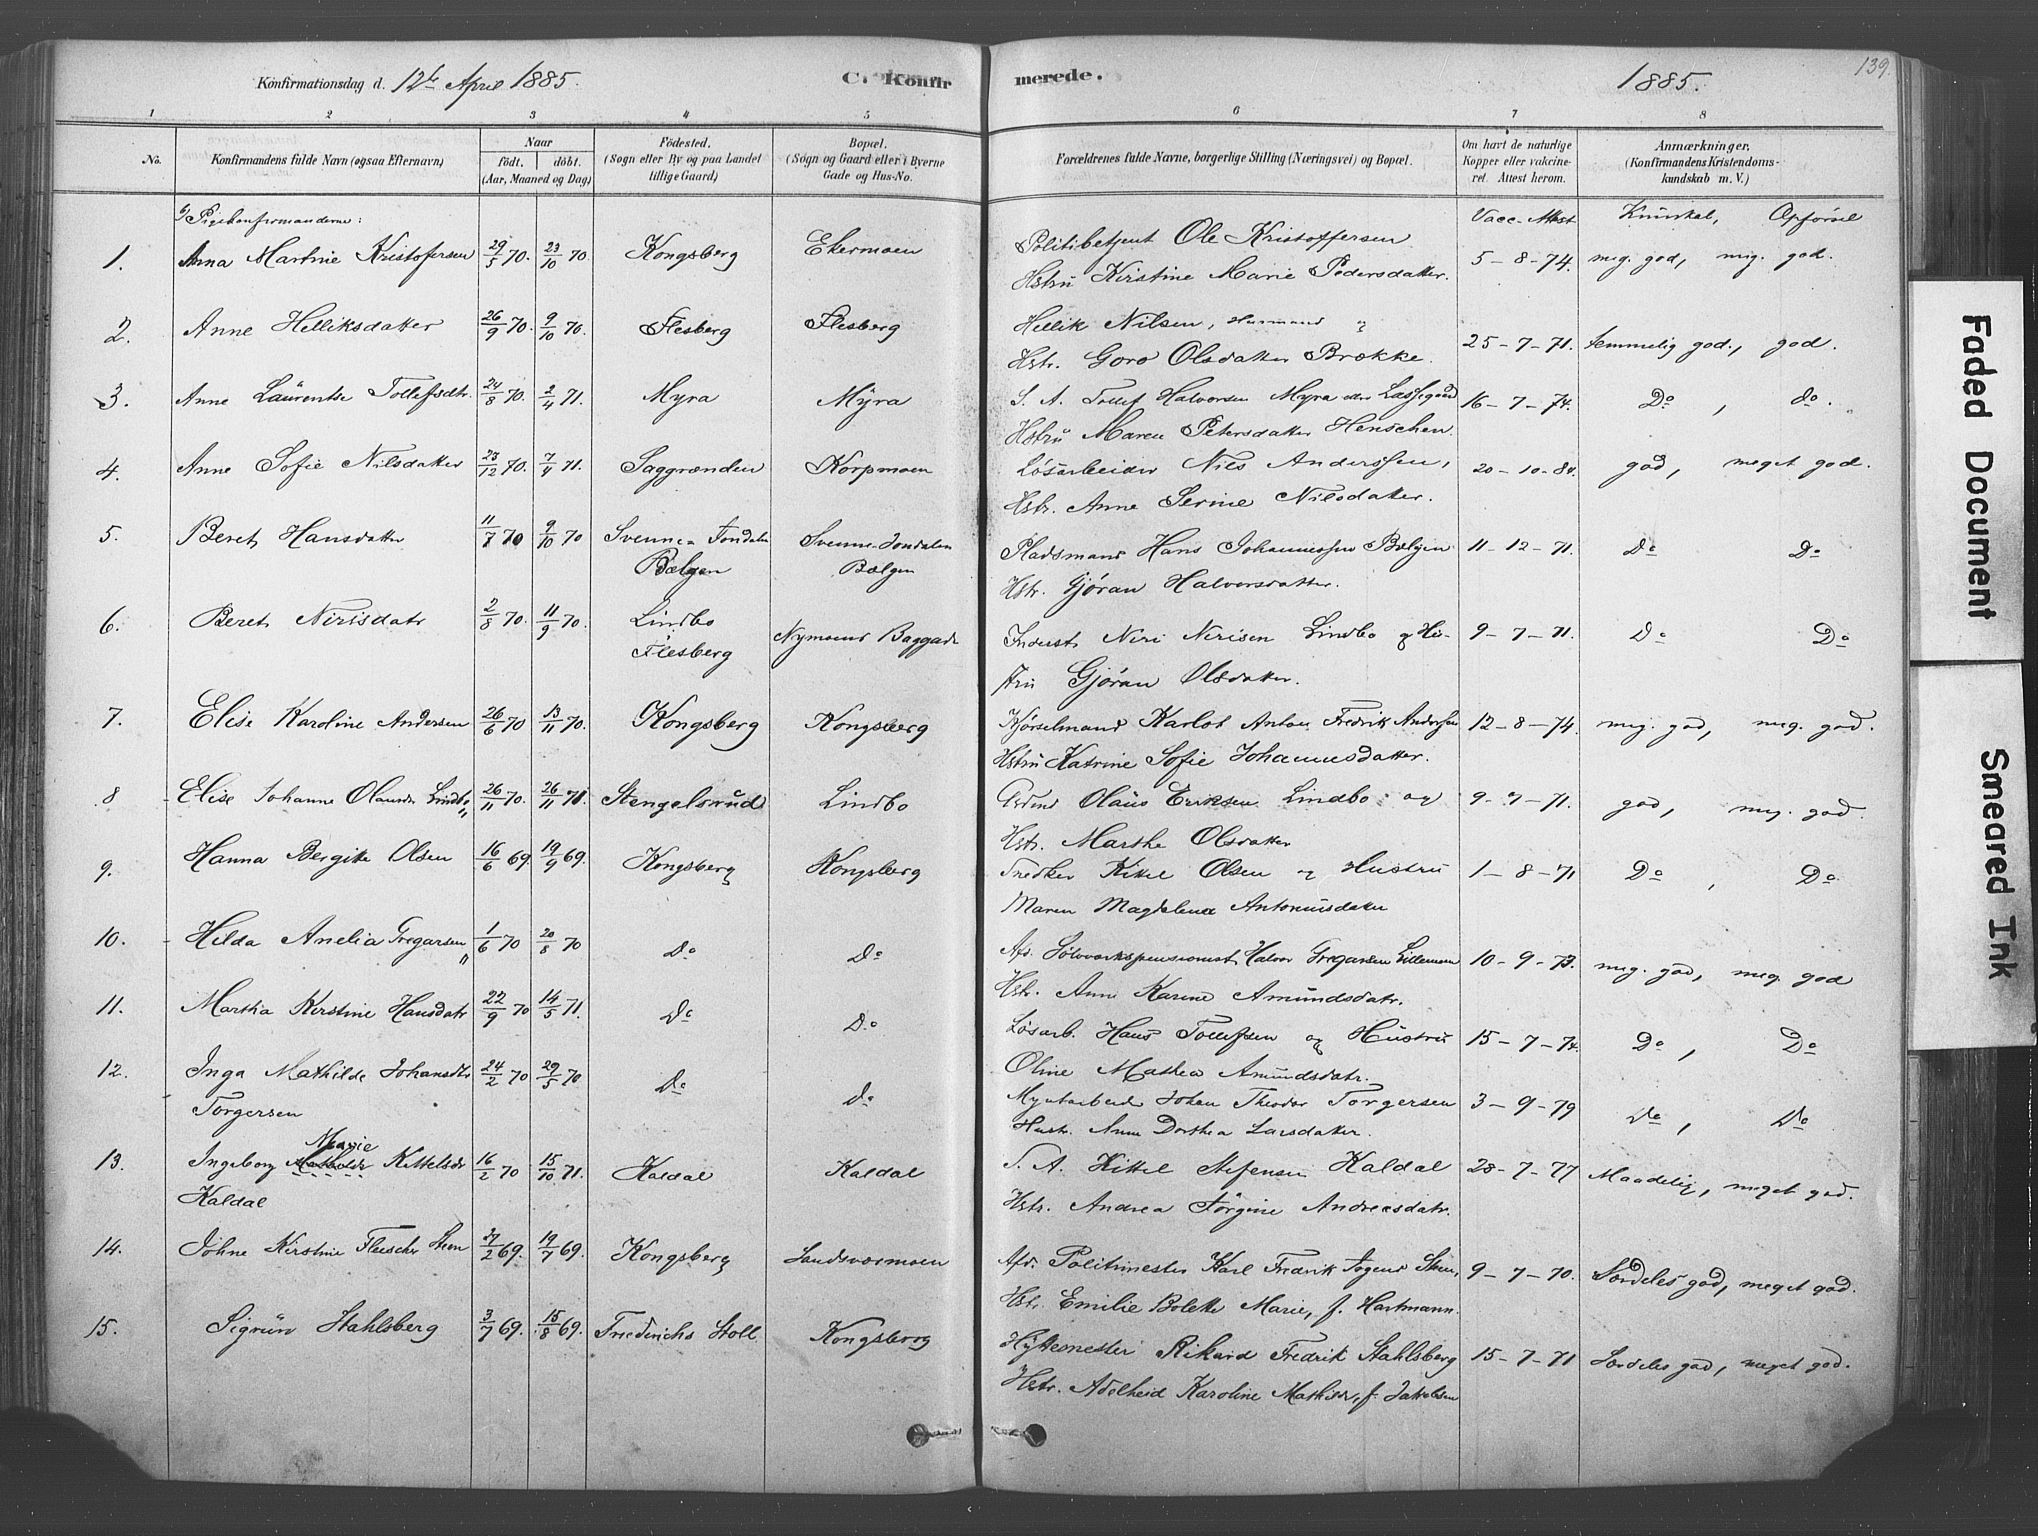 Konfirmationsdag d. 12te April 1885. C. Konfirmerede. 1885. 139.
1 2 3 4 5 6 7 8
No. Konfirmandens fulde Navn (ogsaa Efternavn) Naar födt. döbt. (Aar, Maaned og Dag) Födested. (Sogn eller By og paa Landet tillige Gaard) Bopæl. (Sogn og Gaard eller i Byerne Gade og Hus-No. Forældrenes fulde Navne, borgerlige Stilling (Næringsvei) og Bopæl. Om havt de naturlige Kopper eller vakcineret. Attest herom. Anmærkninger. (Konfirmandens Kristendomskundskab m. V.)
b/ Pigekonfirmanderne: Vacc. Attest Kundskab, Opførsel
1. Anna Martine Kristofersen 29/5 70. 23/10 70. Kongsberg Ekermoen Politibetjent Ole Kristoffersen
Hstru Kirstine Marie Pedersdatter. 5-8-74. meg. god, meg. god.
2. Anne Helliksdatter 26/9 70. 9/10 70. Flesberg Flesberg Hellik Nilsen, Husmand og
Hstr. Goro Olsdatter Brække. 25-7-71. temmelig god, god.
3. Anne Laurentse Tollefsdtr. 24/8 70. 2/4 71. Myra Myra S. A. Tollef Halvorsen Myra
Hstru Maren Petersdatter Henschen. 16-7-74. Do, do.
4. Anne Sofie Nilsdatter 23/12 70. 7/4 71. Saggrenden Korpmoen Løsarbeider Nils Anderssen,
Hstr. Anne Serine Nilsdatter. 20-10-80. god, meget god.
5. Beret Hansdatter 11/7 70 9/10 70 Svenne Jondalen
Bælgen Svenne-Jondalen
Bælgen Pladsmand Hans Johannessen Bælgen
Hstr. Gjøran Halvorsdatter. 11-12-71. Do Do
6. Beret Nirisdatr 2/8 70. 11/9 70. Lindbo
Flesberg Nymoens Baggade Inderst Niri Nerisen Lindbo og Hu-
stru Gjøran Olsdatter. 9-7-71. Do Do
7. Elise Karoline Andersen 26/6 70 13/11 70. Kongsberg Kongsberg Kjørselmand Karlot Anton Fredrik Anderssen
Hstru Katrine Sofie Johannesdatter. 12-8-74. meg. god, meg. god.
8 Elise Johanne Olausdr Lindbo 26/11 70. 26/11 71. Stengelsrud Lindbo Olaus Eriksen Lindbo og
Hstr. Marthe Olsdatter 9-7-71. god, meg. god.
9. Hanna Bergitte Olsen 16/6 69. 19/9 69. Kongsberg Kongsberg Snedker Kittel Olsen og Hustru
Maren Magdalena Antoniusdatter 1-8-71 Do, Do
10. Hilda Amelia Gregarsen 1/6 70 20/8 70 Do Do Afd. Sølvværkspensionist Halvor Gregarsen
Hstr. Anne Karine Amundsdatr. 10-9-73. meg. god, meg. god
11. Martha Kirstine Hansdatr 22/9 70 14/5 71. Do Do Løsarb. Hans Tollefsen og Hustru
Oline Mathea Amundsdatr. 15-7-74. Do, Do
12. Inga Mathilde Johansdtr
Torgersen 24/2 70 29/5 70 Do do Myntarbeider Johan Theodor Torgersen
Hustr. Anne Dorthea Larsdatter. 3-9-79 Do, Do
13. Ingeborg Marie Kittelsdr
Kaldal 16/2 70 15/10 71. Kaldal Kaldal S. A. Kittel Stefensen Kaldal
Hstr. Andrea Jørgine Andreasdatr. 28-7-77 Maadelig, meget god.
14. Johne Kirstine Fleischer Steen 27/2 69. 19/7 69. Kongsberg Sandsværmoen Afd. Politimester Karl Fredrik Steen,
Hstr. Emilie Bolette Marie, f. Hartmann. 9-7-70. Særdeles god, meget god.
15. Sigrun Stahlsberg 3/7 69. 15/8 69. Friederichs Stoll Kongsberg Hyttemester Rikard Fredrik Stahlsberg
Hstr. Adelheid Karoline Mathilde, f. Jakobsen 15-7-71 Særdeles god, meget god.
Faded Document
Smeared Ink